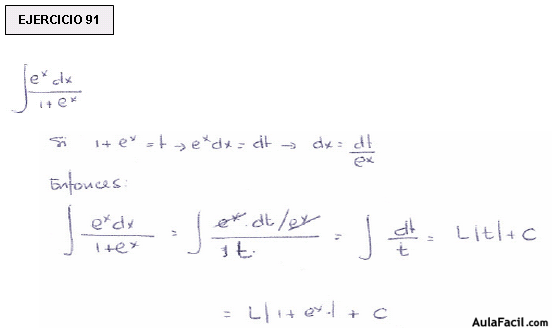 EJERCICIO 91
∫ e^x dx / 1 + e^x
Si 1 + e^x = t → e^x dx = dt → dx = dt / e^x
Entonces:
∫ e^x dx / 1 + e^x = ∫ e^x · dt / e^x / t = ∫ dt / t = L|t| + C
= L|1 + e^x| + C
AulaFacil.com